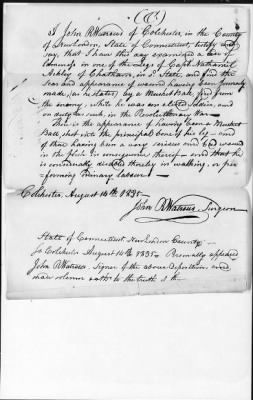 I John R Watrous of Colchester, in the County
of New London, State of Connecticut, testify and
say, that I have this day examined a
lameness in one of the Legs of Capt Nathaniel
Ashley of Chatham, in Sd State, and find the
Scar and appearance of wound having been formerly
made, (as he states) by a Musket Ball, fired from
the enemy, while he was an Soldier, and
on duty as such, in the Revolutionary War
There is the appearance of having been a Musket
Ball shot into the principal bone of his leg - and
of there having been a very serious and bad wound
in the flesh in consequence thereof - and that he
is considerably disabled thereby in walking, or per
forming Ordinary labour
Colchester August 14th 1832
John R Watrous Surgeon
State of Connecticut New London County
In Colchester August 14th 1832 Personally appeared
John R Watrous Signer of the above Deposition and
made solemn oath to the truth